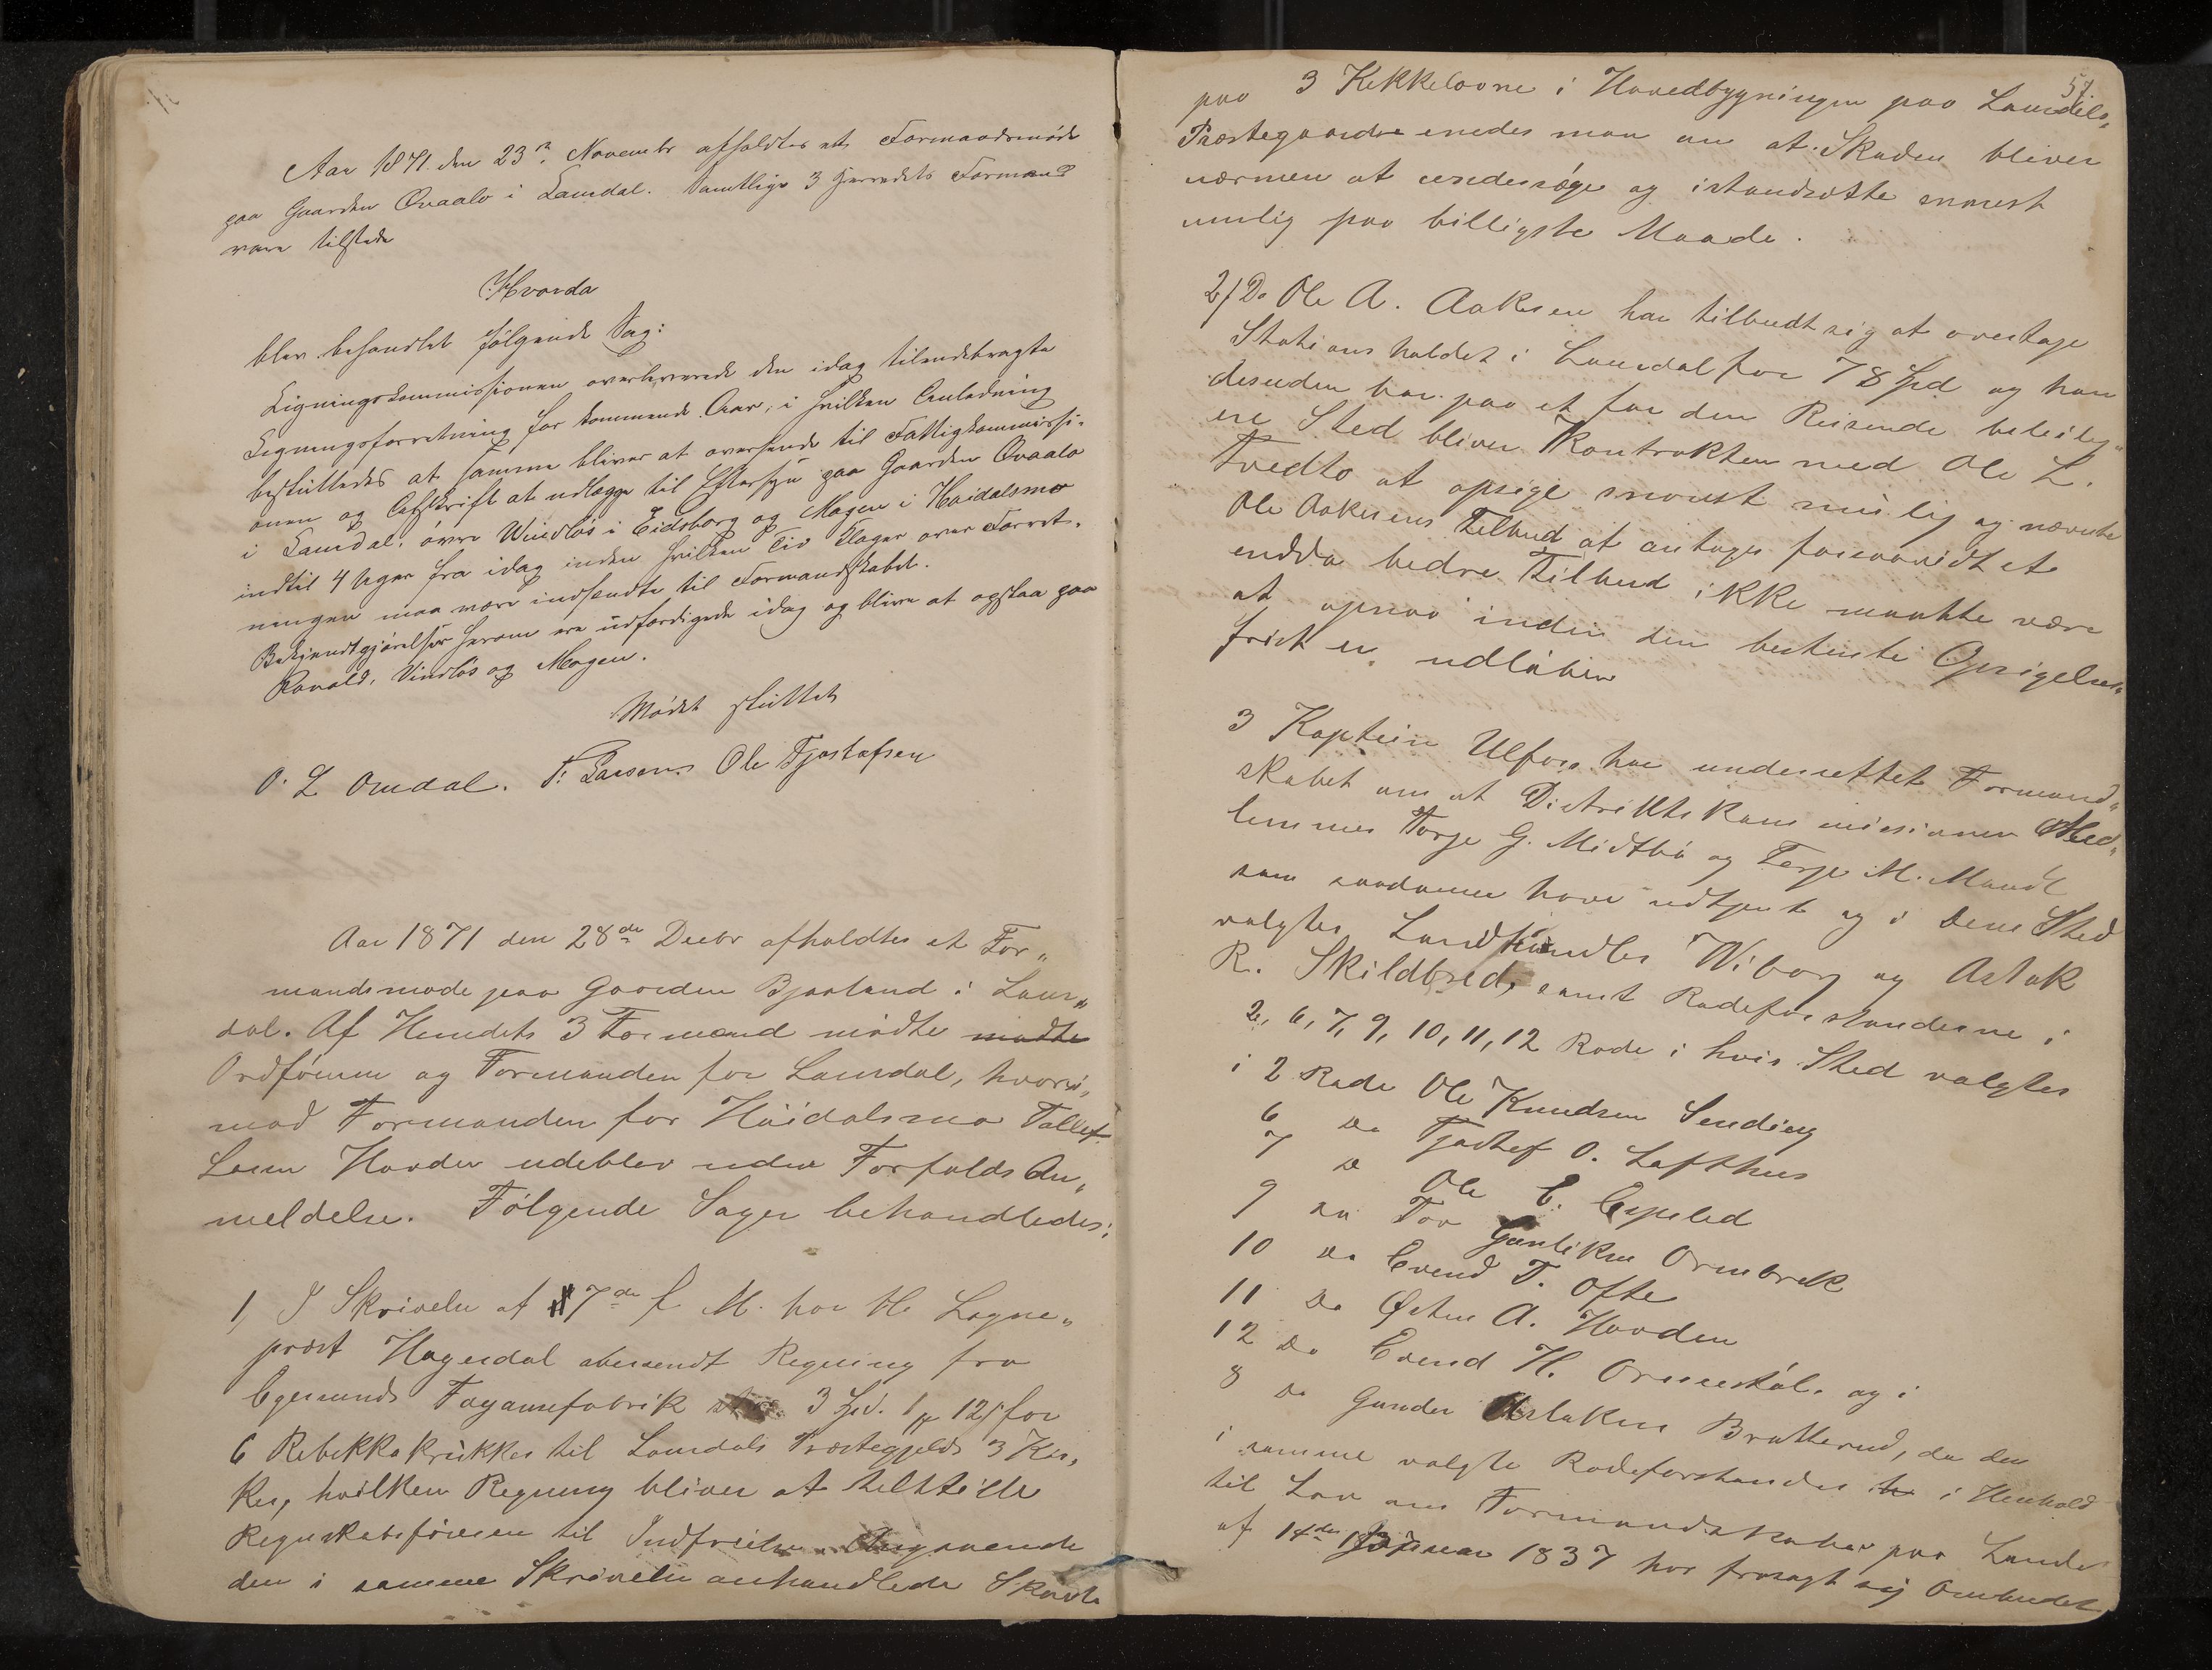 Aar 1871 den 23de Novembr afholdtes et Formandsmøde
paa Gaarden Qvaalo i Laurdal. Samtlige 3 Herredets Formænd
vare tilstede
Hvorda
blev behandlet følgende Sag:
Ligningskommissionen overleverede den idag tilendebragte
Ligningsforretning for kommende Aar, i hvilken Anledning
besluttedes at samme bliver at oversende til Fattigkommissi-
onen og Afskrift at udlægge til Eftersyn paa Gaarden Qvaalo
i Laurdal, øvre Vindlös i Eidsborg og Mogen i Høidalsmo
indtil 4 Uger fra idag inden hvilken Tid Klager over Forret-
ningen maa være indsendte til Formandskabet.
Bekjendtgjørelser herom ere udfærdigede idag og blive at opslaa paa
Vindlös og Mogen.
Mødet sluttet
O. L Omdal. T. Larsen. Ole Tjostofsen
Aar 1871 den 28de Decbr afholdtes et For„
mandsmøde paa Gaarden Bjaaland i Laur„
dal. Af Herredets 3 Formænd mødte mødte
Ordføreren og Formanden for Laurdal, hvori„
mod Formanden for Høidalsmo Tallef
Hovden udeblev uden Forfalds An„
meldelse. Følgende Sager behandledes:
1, I Skrivelse af 7de f. M. har Hr Sogne„
præst Hagerdal oversendt Regning fra
Egersunds Fayancefabrik 3 Spd. 1 12 for
6 Rebekkakrukker til Laurdals Præstegjelds 3 Kir„
ker, hvilken Regning bliver at tilstille
Regnskabsføreren til Indfrielse. Angaaende
den i samme Skrivelse omhandlede Skade
57
paa 3 Kakkelovne i Hovedbygningen paa Laurdals„
Præstegaard enedes man om at Skaden bliver
nærmere at undersøge og istandsætte snarest
mulig paa billigste Maade.
2/ Da Ole A. Aakesen har tilbudt sig at overtage
Stationsholdet i Laurdal for 78 Spd og han
desuden bor paa et for den Reisende beleilig„
ere Sted bliver Kontrakten med Ole L.
Tvedto at opsige snarest mulig og nævnte
Ole Aakesens Tilbud at antages forsaavidt et
endda bedre Tilbud ikke maatte være
at opnaa inden den bestemte Opsigelses„
frist er udløben
3 Kaptein Ulfers har underrettet Formand„
skabet om at Distriktskommissionen Med„
lemmer Torje G. Midtbø og Terje M. Mandt
som saadanne have udtjent og i Dere Sted
valgtes Landhandler Wiborg og Aslak
R. Skildbred, samt Rodeforstanderne i
2, 6, 7, 9, 10, 11, 12 Rode i hvis Sted valgtes
i 2 Rode Ole Knudsen Sending
6 Do Tjostef O. Lofthus
7 Do Ole E. Espeled
9 Do Tor Gunliksen Ormbrek
10 Do Evend T. Ofte
11 Do Østen A. Hovden
12 Do Evend H. Ormestøl. og i
8 Do Gunder Aslaksen Bratterud, da den
i samme valgte Rodeforstander i Henhold
til Lov om Formandskaber paa Landet
af 14de Januar 1837 har frasagt sig Ombudet